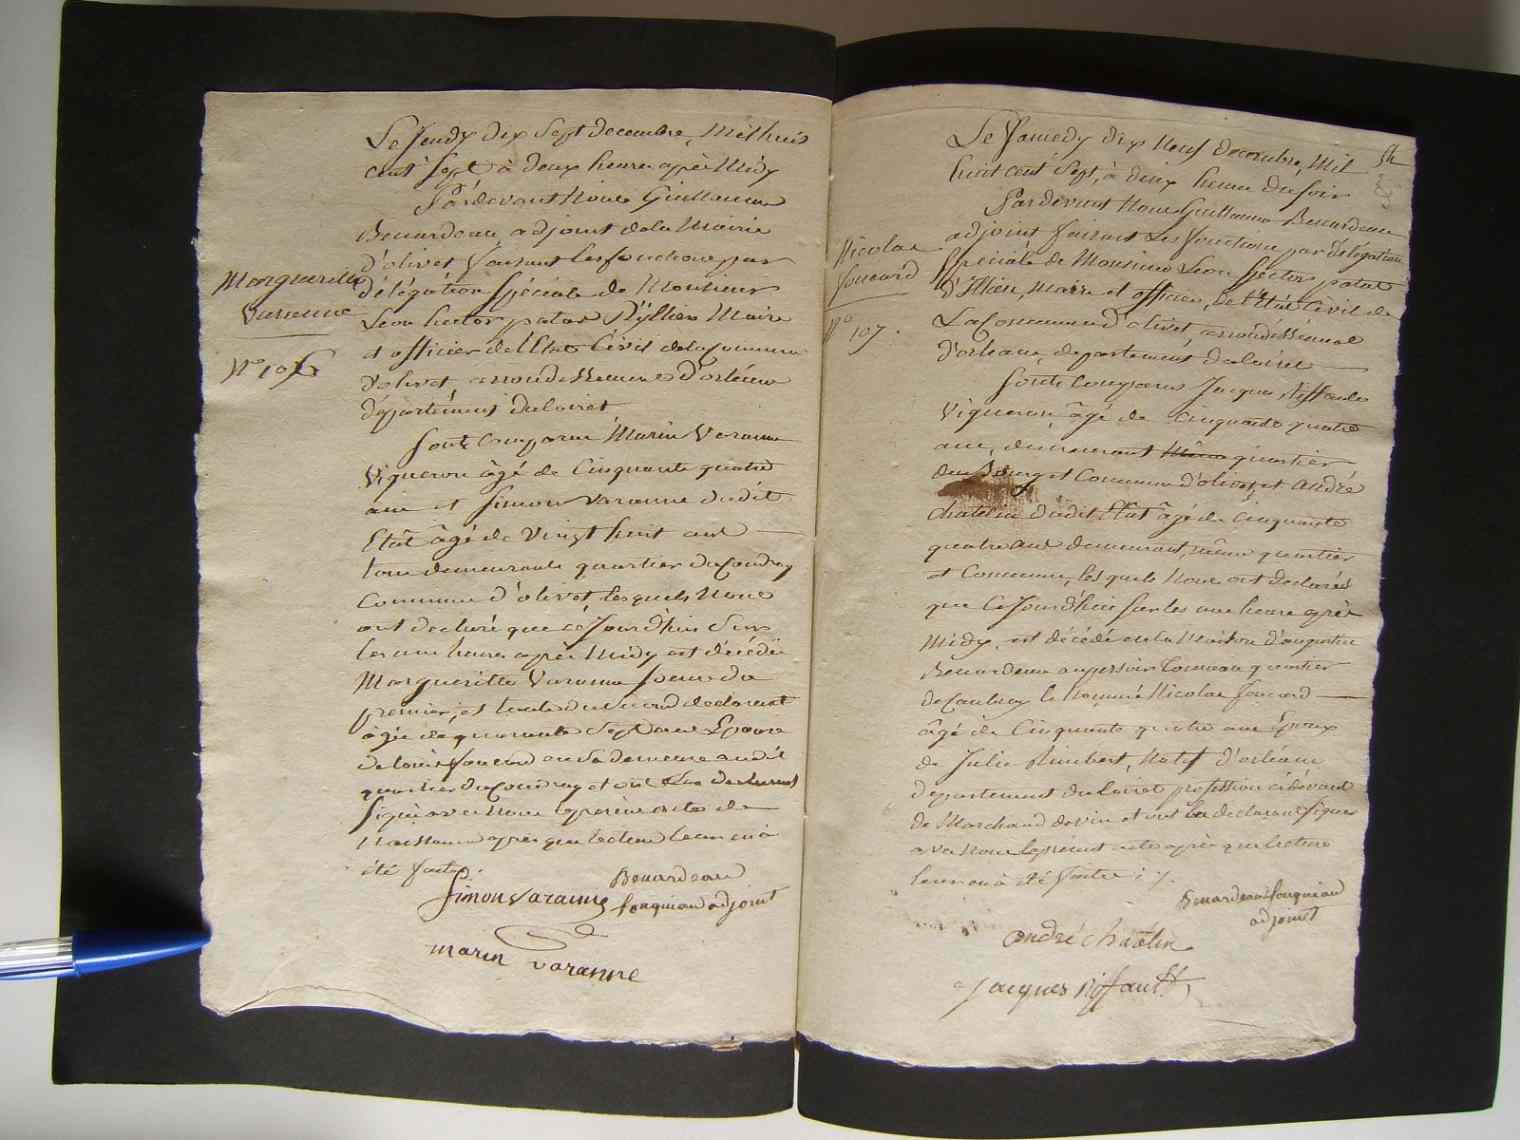 Le Jeudy dix Sept decembre, Mil huit
cent Sept à deux heure après Midy
Pardevant Nous Guillaume
Benardeau adjoint de la Mairie
d'olivet faisant les fonctions par
délégation Spéciale de Monsieur
Leon hector patas d'yllien Maire
et officier de l'Etat Civil de la Commune
d'olivet, arrondissement d'orléans
département du loiret
Sont Comparu Marin Varanne
Vigneron âgé de Cinquante quatre
ans et Simon Varanne dudit
Etat âgé de Vingt huit ans
tous demeurants quartier du Coudray
Commune d'olivet, lesquels Nous
ont declaré que ce Jourd'hui Sur
les une heure après Midy est décédée
Margueritte Varanne Soeur du
premier, et tante du second declarant
âgée de quarante Sept ans Epouse
de louis foucard en Sa demeure audit
quartier du Coudray et ont Les declarants
Signé avec Nous le présent acte de
après que lecture leur en à
été faite.
Margueritte
Varenne
N° 106
Simon Varanne
Benardeau
fouqniau adjoint
marin varanne
Le Samedy dix Neuf decembre, Mil
huit cent Sept, à deux heure du Soir
Pardevant Nous Guillaume Benardeau
adjoint faisant Les fonctions par délégation
Spéciale de Monsieur Leon hector patas
d'Illien, Maire et officier de l'Etat Civil de
La Commune d'olivet, arrondissement
d'orleans, departement du loiret
Sont Comparus Jacques Riffault
Vigneron âgé de Cinquante quatre
ans, demeurant quartier
du Bourg et Commune d'olivet et André
Chatelin dudit Etat âgé de Cinquante
quatre ans demeurant, même quartier
et Commune, lesquels Nous ont declarés
que ce Jourd'hui Sur les une heure après
Midy, est décédé en la Maison d'augustin
Benardeau quartier
de le Nommé Nicolas foucard
âgé de Cinquante quatre ans Epoux
de Julie Rimbert, Natif d'orléans
département du loiret profession cidevant
de Marchand de vin et ont Les declarant Signé
avec Nous le présent acte après que lecture
leur en à été faite ./.
Nicolas
foucard
N° 107.
Benardeau fouqniau
adjoint
andré chatelin
Jacques Riffault